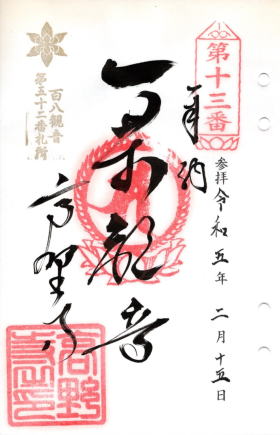 第十三番
奉納
参拝 令和五年 二月十五日
千手観音
高野寺
百八観音
第五十二番札所
高野